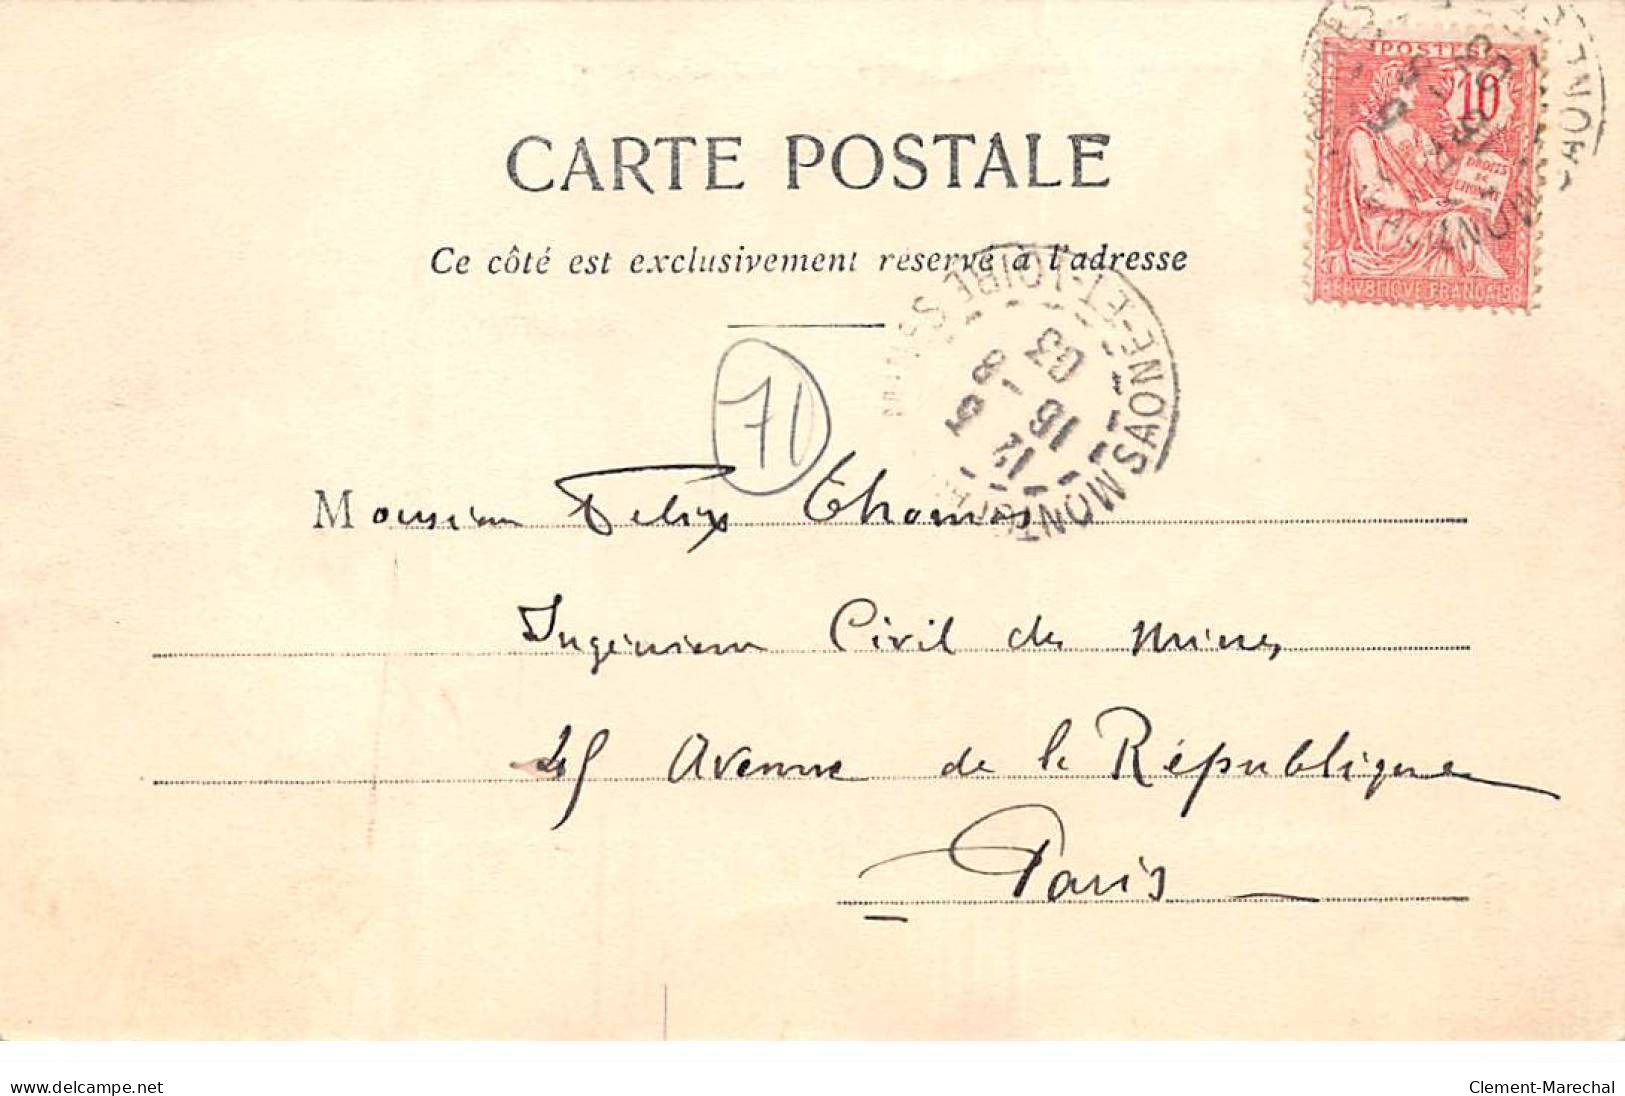 CARTE POSTALE
Ce côté est exclusivement réservé à l'adresse
POSTES
10
DROITS DE L'HOMME
REPVBLIQUE FRANCAISE
MONTCEAU-LES-MINES
SAONE-ET-LOIRE
12
16 - 8
03
71
Monsieur Felix Thomas
Ingénieur Civil des Mines
45 Avenue de la République
Paris
www.delcampe.net
Clement-Marechal